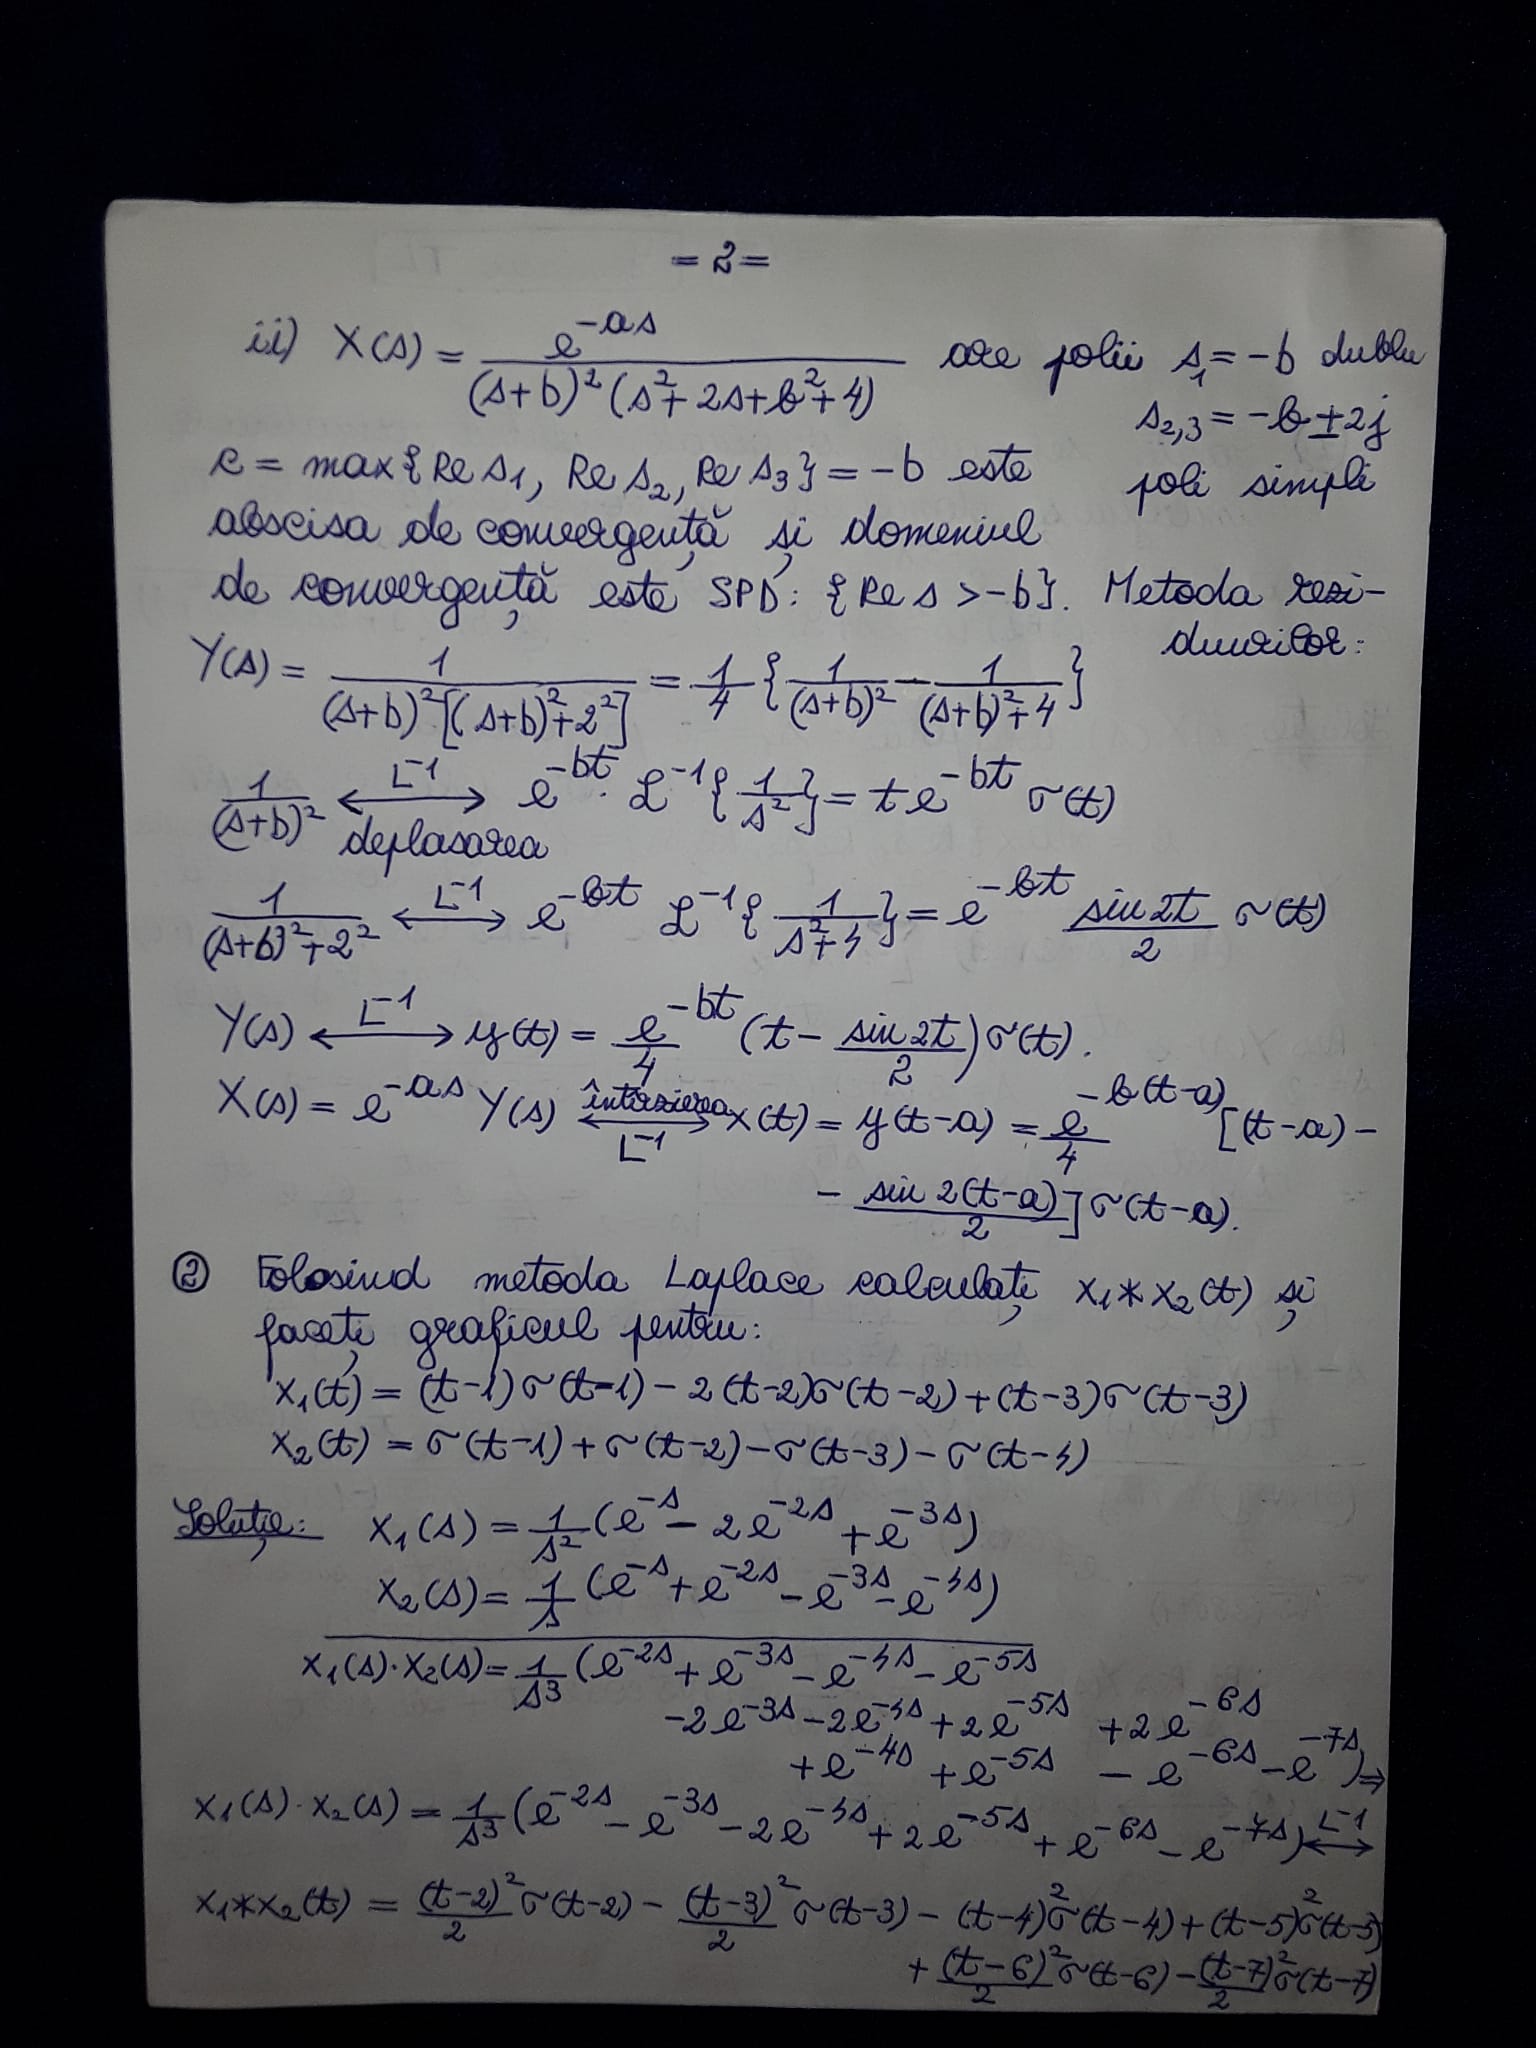 = 2 =
ii) X(s) = e^{-as} / (s+b)²(s²+2s+b²+4) are polii s₁ = -b dublu
s₂,₃ = -b ± 2j
c = max{Re s₁, Re s₂, Re s₃} = -b este poli simpli
abscisa de convergență și domeniul
de convergență este SPD: {Re s > -b}. Metoda rezi-
duurilor:
Y(s) = 1/((s+b)²[(s+b)²+2²]) = 1/4 {1/(s+b)² - 1/((s+b)²+4)}
1/(s+b)² ⟷^{L⁻¹} e^{-bt} · L⁻¹{1/s²} = t e^{-bt} σ(t)
deplasarea
1/((s+b)²+2²) ⟷^{L⁻¹} e^{-bt} L⁻¹{1/(s²+4)} = e^{-bt} (sin 2t)/2 σ(t)
Y(s) ⟷^{L⁻¹} y(t) = e^{-bt}/4 (t - (sin 2t)/2) σ(t).
X(s) = e^{-as} Y(s) ⟷^{întârzierea}_{L⁻¹} x(t) = y(t-a) = e^{-b(t-a)}/4 [(t-a) -
- (sin 2(t-a))/2] σ(t-a).
② Folosind metoda Laplace calculați x₁*x₂(t) și
faceți graficul pentru:
x₁(t) = (t-1)σ(t-1) - 2(t-2)σ(t-2) + (t-3)σ(t-3)
x₂(t) = σ(t-1) + σ(t-2) - σ(t-3) - σ(t-4)
Soluție: X₁(s) = 1/s² (e^{-s} - 2e^{-2s} + e^{-3s})
X₂(s) = 1/s (e^{-s} + e^{-2s} - e^{-3s} - e^{-4s})
X₁(s)·X₂(s) = 1/s³ (e^{-2s} + e^{-3s} - e^{-4s} - e^{-5s}
-2e^{-3s} - 2e^{-4s} + 2e^{-5s} + 2e^{-6s}
+ e^{-4s} + e^{-5s} - e^{-6s} - e^{-7s}) ⇒
X₁(s)·X₂(s) = 1/s³ (e^{-2s} - e^{-3s} - 2e^{-4s} + 2e^{-5s} + e^{-6s} - e^{-7s}) ⟷^{L⁻¹}
x₁*x₂(t) = (t-2)²/2 σ(t-2) - (t-3)²/2 σ(t-3) - (t-4)²σ(t-4) + (t-5)²σ(t-5)
+ (t-6)²/2 σ(t-6) - (t-7)²/2 σ(t-7)